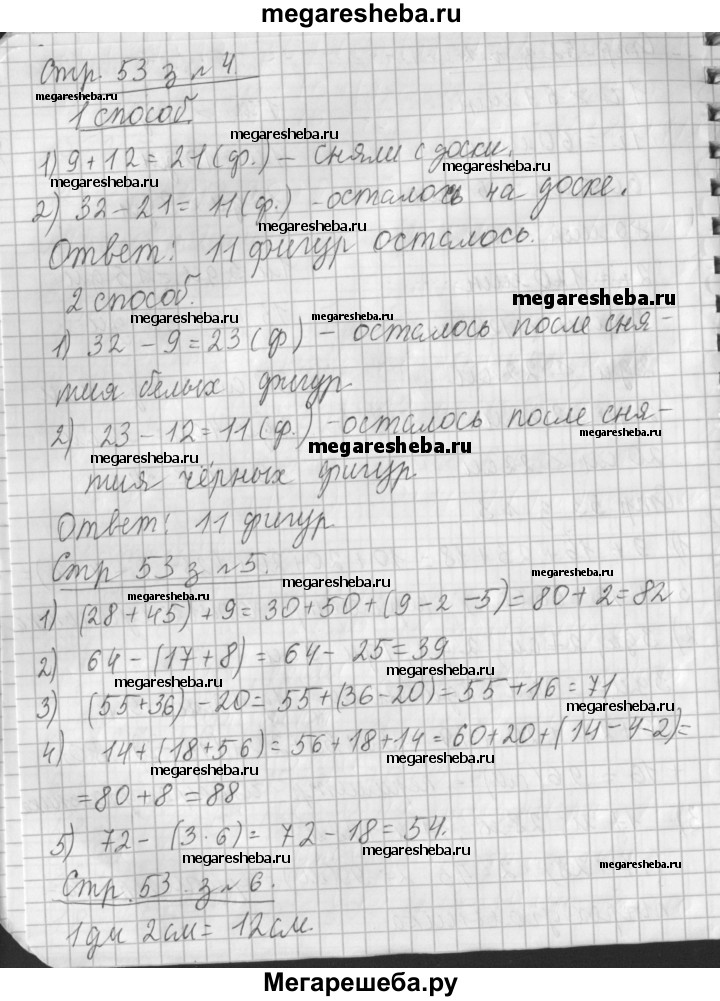 megaresheba.ru
Стр. 53 з №4.
megaresheba.ru
1 способ.
megaresheba.ru
1) 9+12=21(ф.) – сняли с доски.
megaresheba.ru megaresheba.ru
2) 32-21=11(ф.) -осталось на доске.
Ответ: 11 фигур осталось.
2 способ. megaresheba.ru
megaresheba.ru megaresheba.ru
1) 32-9=23(ф) – осталось после сня-
тия белых фигур
2) 23-12=11(ф.) -осталось после сня-
megaresheba.ru megaresheba.ru megaresheba.ru
тия чёрных фигур.
Ответ: 11 фигур
Стр 53 з №5.
megaresheba.ru megaresheba.ru
megaresheba.ru
1) (28+45)+9=30+50+(9-2-5)=80+2=82
2) 64-(17+8)=64-25=39
megaresheba.ru megaresheba.ru
3) (55+36)-20=55+(36-20)=55+16=71
megaresheba.ru
4) 14+(18+56)=56+18+14=60+20+(14-4-2)=
megaresheba.ru megaresheba.ru
=80+8=88
5) 72-(3·6)=72-18=54.
megaresheba.ru megaresheba.ru megaresheba.ru
Стр. 53. з №6.
megaresheba.ru
1дм 2см=12см.
Мегарешеба.ру